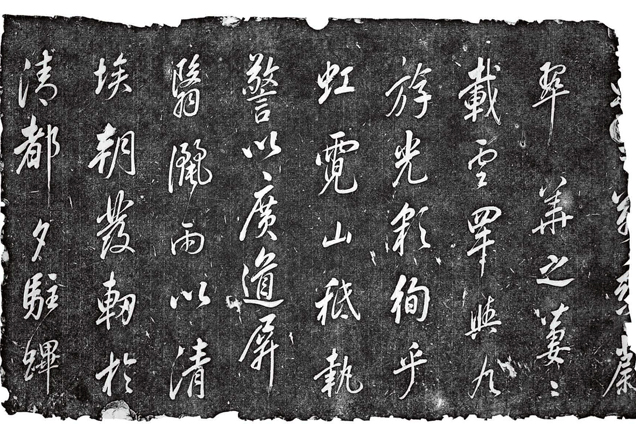 翠華之萋萋
載雲罕與九
斿光彩徇乎
虹霓山祗執
警以廣道屏
翳灑雨以清
埃朝發軔於
清都夕駐蹕